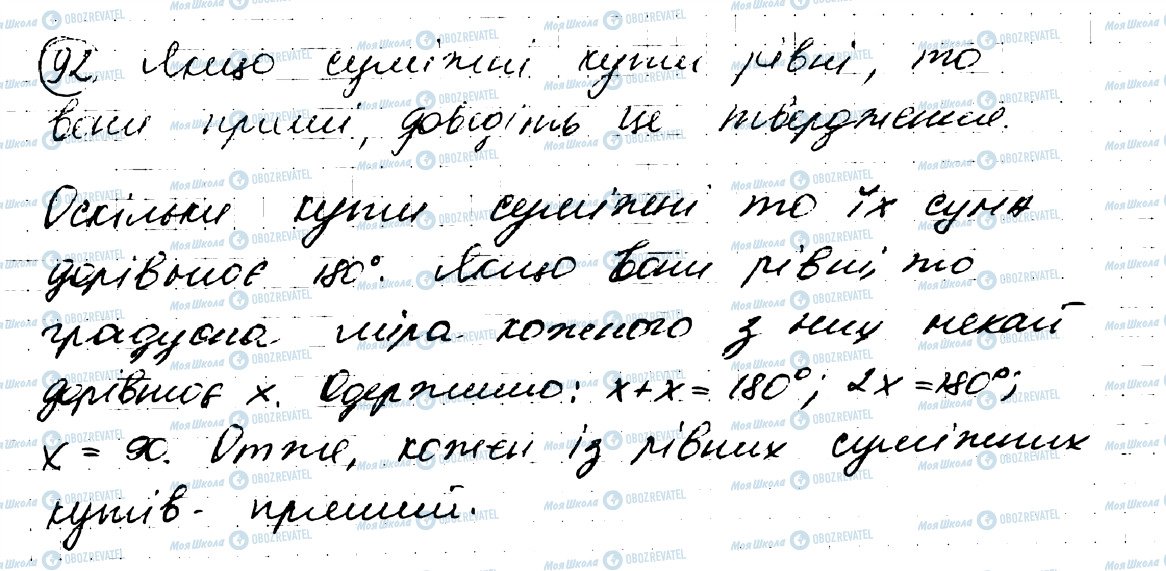 92. Якщо суміжні кути рівні, то
вони прямі, доведіть це твердження.
Оскільки кути суміжні то їх сума
дорівнює 180°. Якщо вони рівні, то
градусна міра кожного з них нехай
дорівнює x. Одержимо: x+x=180°; 2x=180°;
x=90. Отже, кожен із рівних суміжних
кутів - прямий.